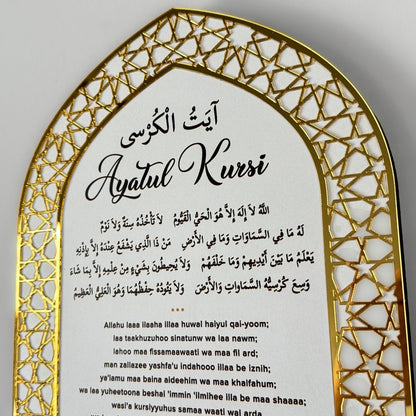 آيَتُ الْكُرْسِى
Ayatul Kursi
اَللّٰهُ لَا إِلَهَ إِلاَّ هُوَ الْحَيُّ الْقَيُّومُ لَا تَأْخُذُهُ سِنَةٌ وَلَا نَوْمٌ
لَهُ مَا فِي السَّمَاوَاتِ وَمَا فِي الْأَرْضِ مَنْ ذَا الَّذِي يَشْفَعُ عِنْدَهُ إِلاَّ بِإِذْنِهِ
يَعْلَمُ مَا بَيْنَ أَيْدِيهِمْ وَمَا خَلْفَهُمْ وَلَا يُحِيطُونَ بِشَيْءٍ مِنْ عِلْمِهِ إِلاَّ بِمَا شَاءَ
وَسِعَ كُرْسِيُّهُ السَّمَاوَاتِ وَالْأَرْضَ وَلَا يَئُودُهُ حِفْظُهُمَا وَهُوَ الْعَلِيُّ الْعَظِيمُ
Allahu laaa ilaaha illaa huwal haiyul qai-yoom;
laa taakhuzuhoo sinatunw wa laa nawm;
lahoo maa fissamaawaati wa maa fil ard;
man zallazee yashfa'u indahooo illaa be iznih;
ya'lamu maa baina aideehim wa maa khalfahum;
wa laa yuheetoona beshai 'immin 'ilmihee illa be maa shaaaa;
wasi'a kursiyyuhus samaa waati wal arda